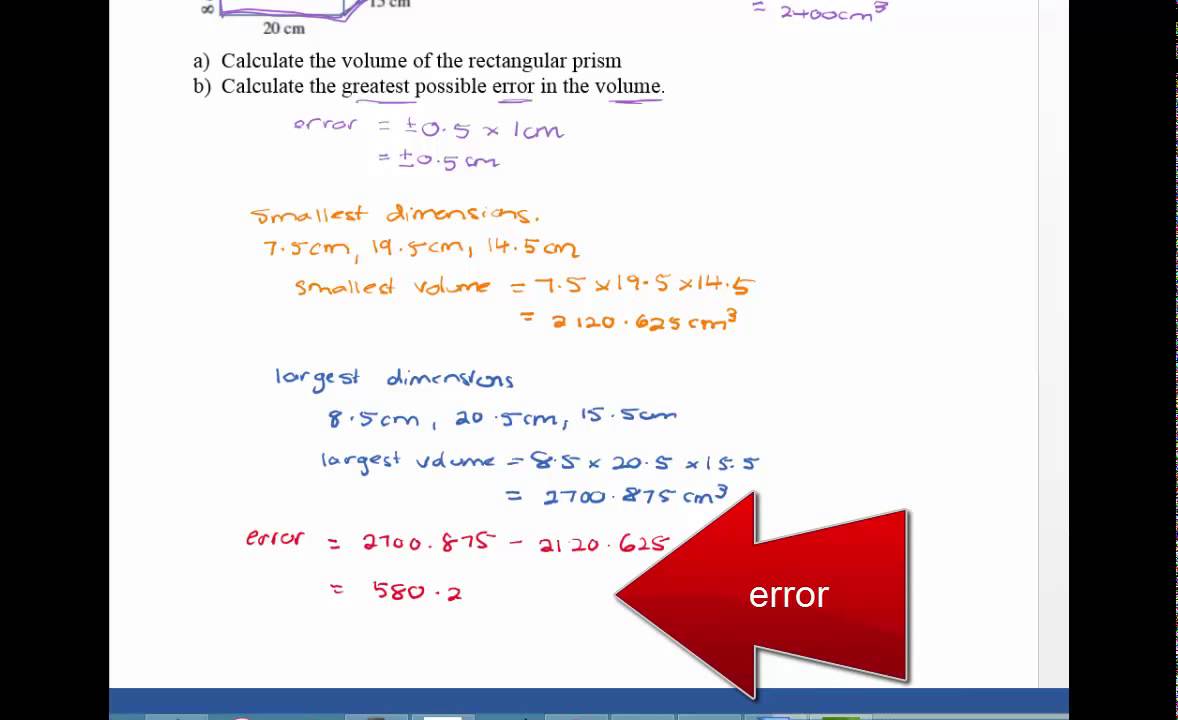 8
15 cm
20 cm
= 2400cm³
a) Calculate the volume of the rectangular prism
b) Calculate the greatest possible error in the volume.
error = ±0.5 × 1cm
= ±0.5cm
smallest dimensions.
7.5cm, 19.5cm, 14.5cm
smallest volume = 7.5 ×19.5 ×14.5
= 2120.625 cm³
largest dimensions
8.5cm, 20.5cm, 15.5cm
largest volume = 8.5 × 20.5 ×15.5
= 2700.875 cm³
error = 2700.875 - 2120.625
= 580.2
error